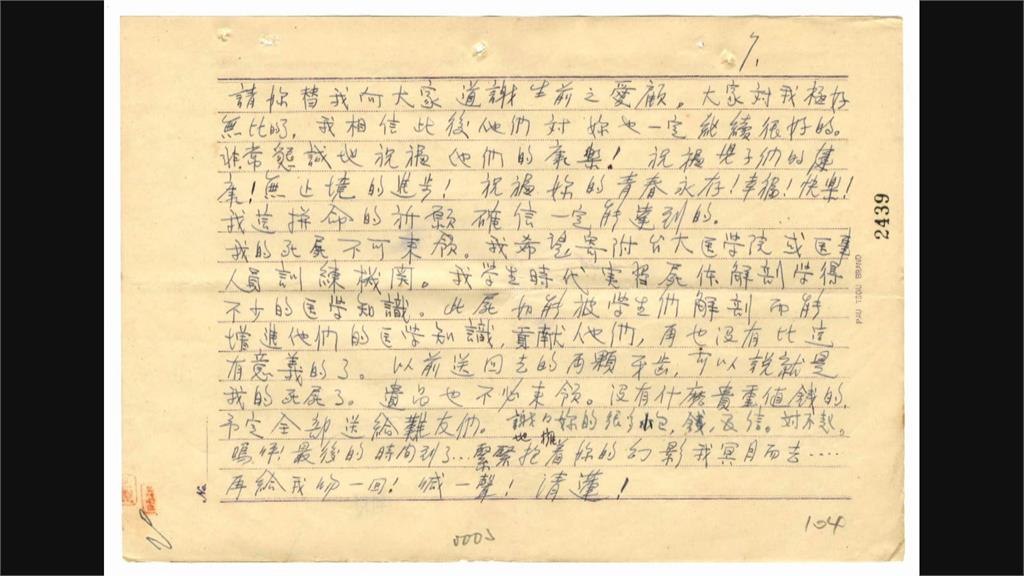 7.
請你替我向大家道謝生前之愛顧。大家対我極好
無比的，我相信此後他們対妳也一定能續很好的。
非常懇誠地祝福他們的康樂！祝福孩子們的健
康！無止境的進步！祝福妳的青春永存！幸福！快樂！
我這拼命的祈願確信一定能達到的。
我的死屍不可來領。我希望寄附台大医学院或医事
人員訓練機関。我学生時代実習屍体解剖学得
不少的医学知識。此屍如能被学生們解剖而能
增進他們的医学知識貢献他們，再也没有比這
有意義的了。以前送回去的兩顆牙齿，可以說就是
我的死屍了。遺品也不必來領。没有什麽貴重值錢的，
予定全部送給難友們。謝々妳的
小包，錢，及信。対不起。
嗚呼！最後的時間到了…緊緊
也擁
抱着妳的幻影我冥目而去……
再給我吻一回！喊一聲！清蓮！
2439
PAU TSOU BRAND
No.
0005
104